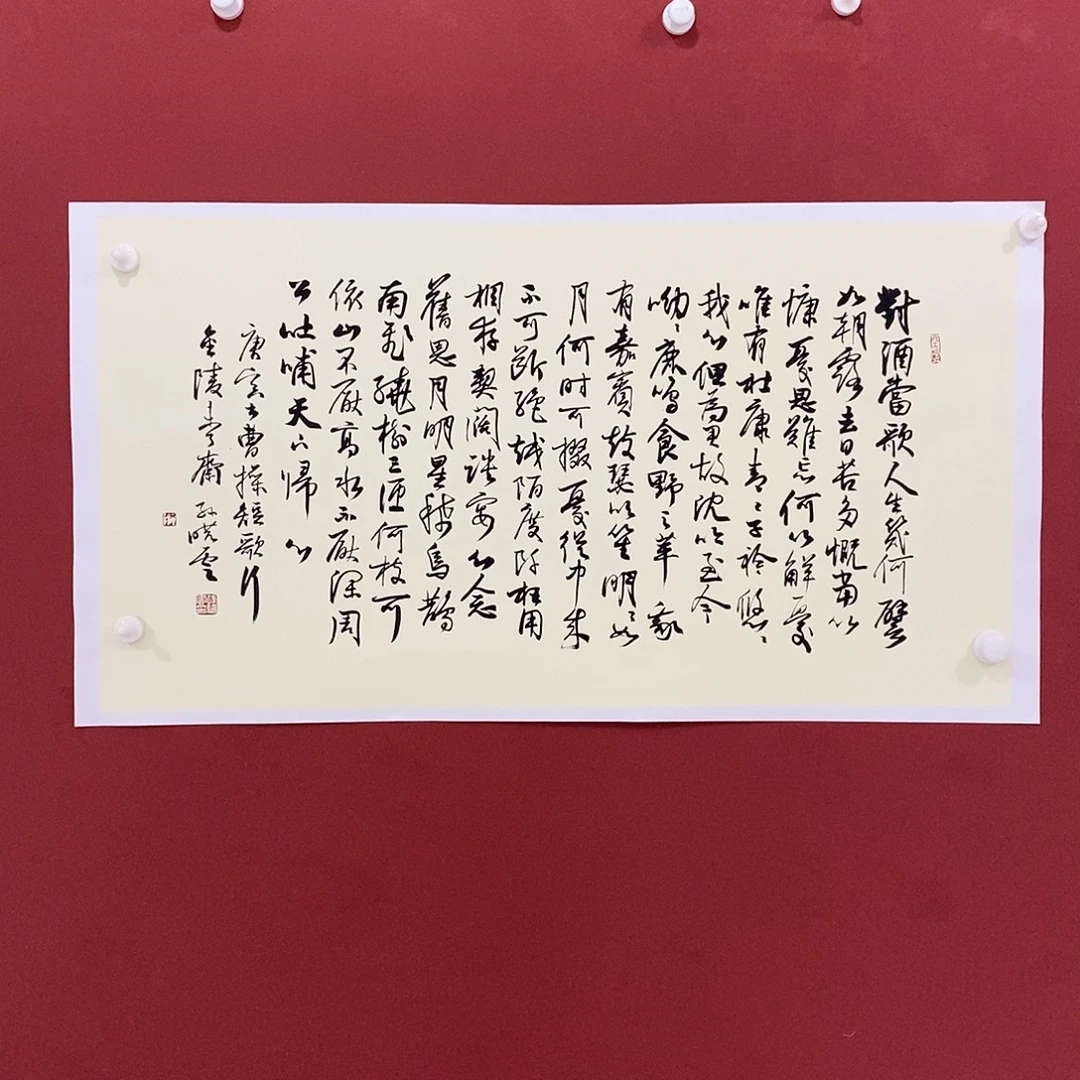 對酒當歌人生幾何譬
如朝露去日苦多慨當以
慷憂思難忘何以解憂
唯有杜康青々子衿悠々
我心但為君故沈吟至今
呦々鹿鳴食野之苹我
有嘉賓鼓瑟吹笙明々如
月何时可掇憂從中來
不可斷絕越陌度阡枉用
相存契闊談宴心念
舊恩月明星稀烏鵲
南飛繞樹三匝何枝可
依山不厭高水不厭深周
公吐哺天下歸心
庚寅書曹操短歌行
金陵齋孫曉雲